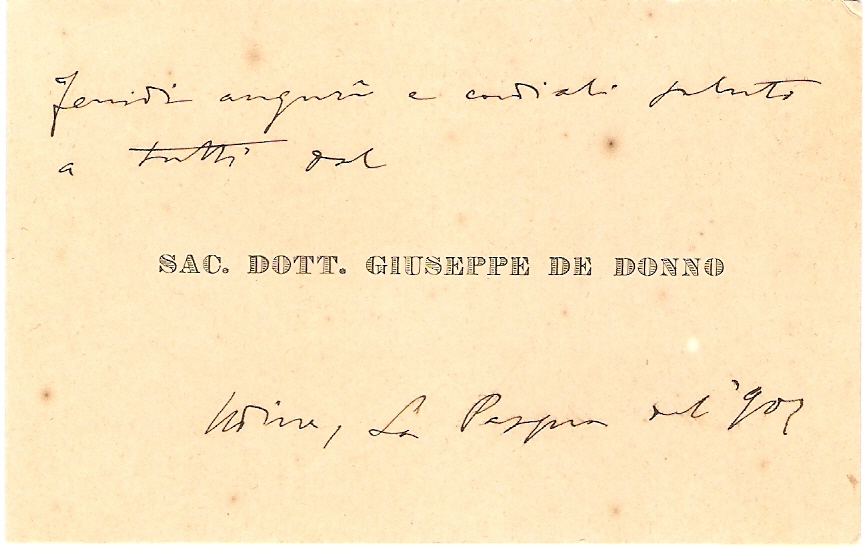 Fervidi auguri e cordiali saluti
a tutti dal
SAC. DOTT. GIUSEPPE DE DONNO
Udine, La Pasqua del '90